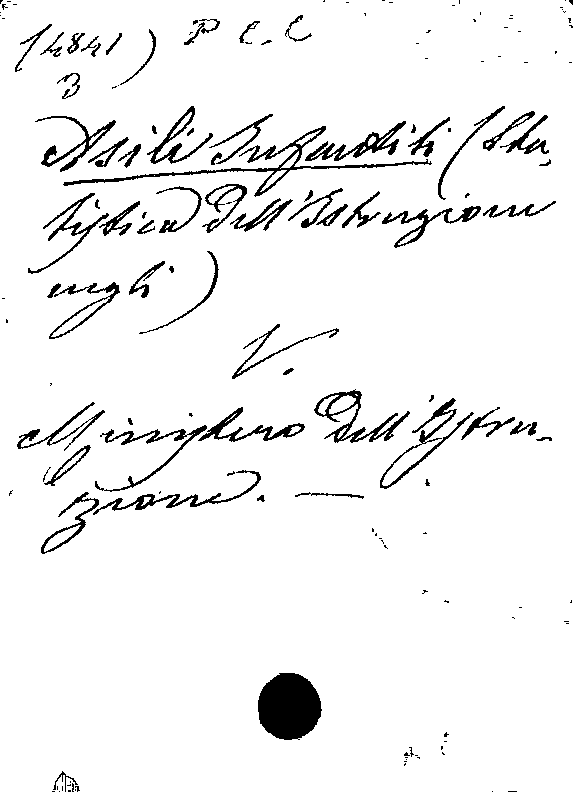 (4841) P C. C
3
Asili Infantili (Sta-
tistica Dell'Istruzione
negli)
V.
Ministero Dell'Istru-
zione. —